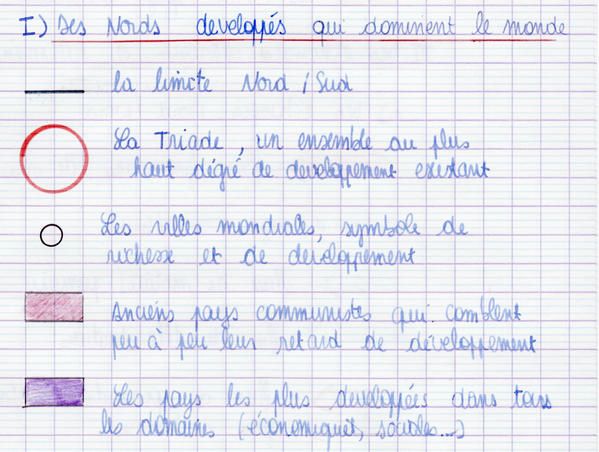 I) Des Nords developpés qui dominent le monde
la limite Nord / Sud
La Triade, un ensemble au plus
haut dégré de developpement existant
Les villes mondiales, symbole de
richesse et de développement
Anciens pays communistes qui comblent
peu à peu leur retard de développement
Les pays les plus developpées dans tous
les domaines (économiques, sociales...)